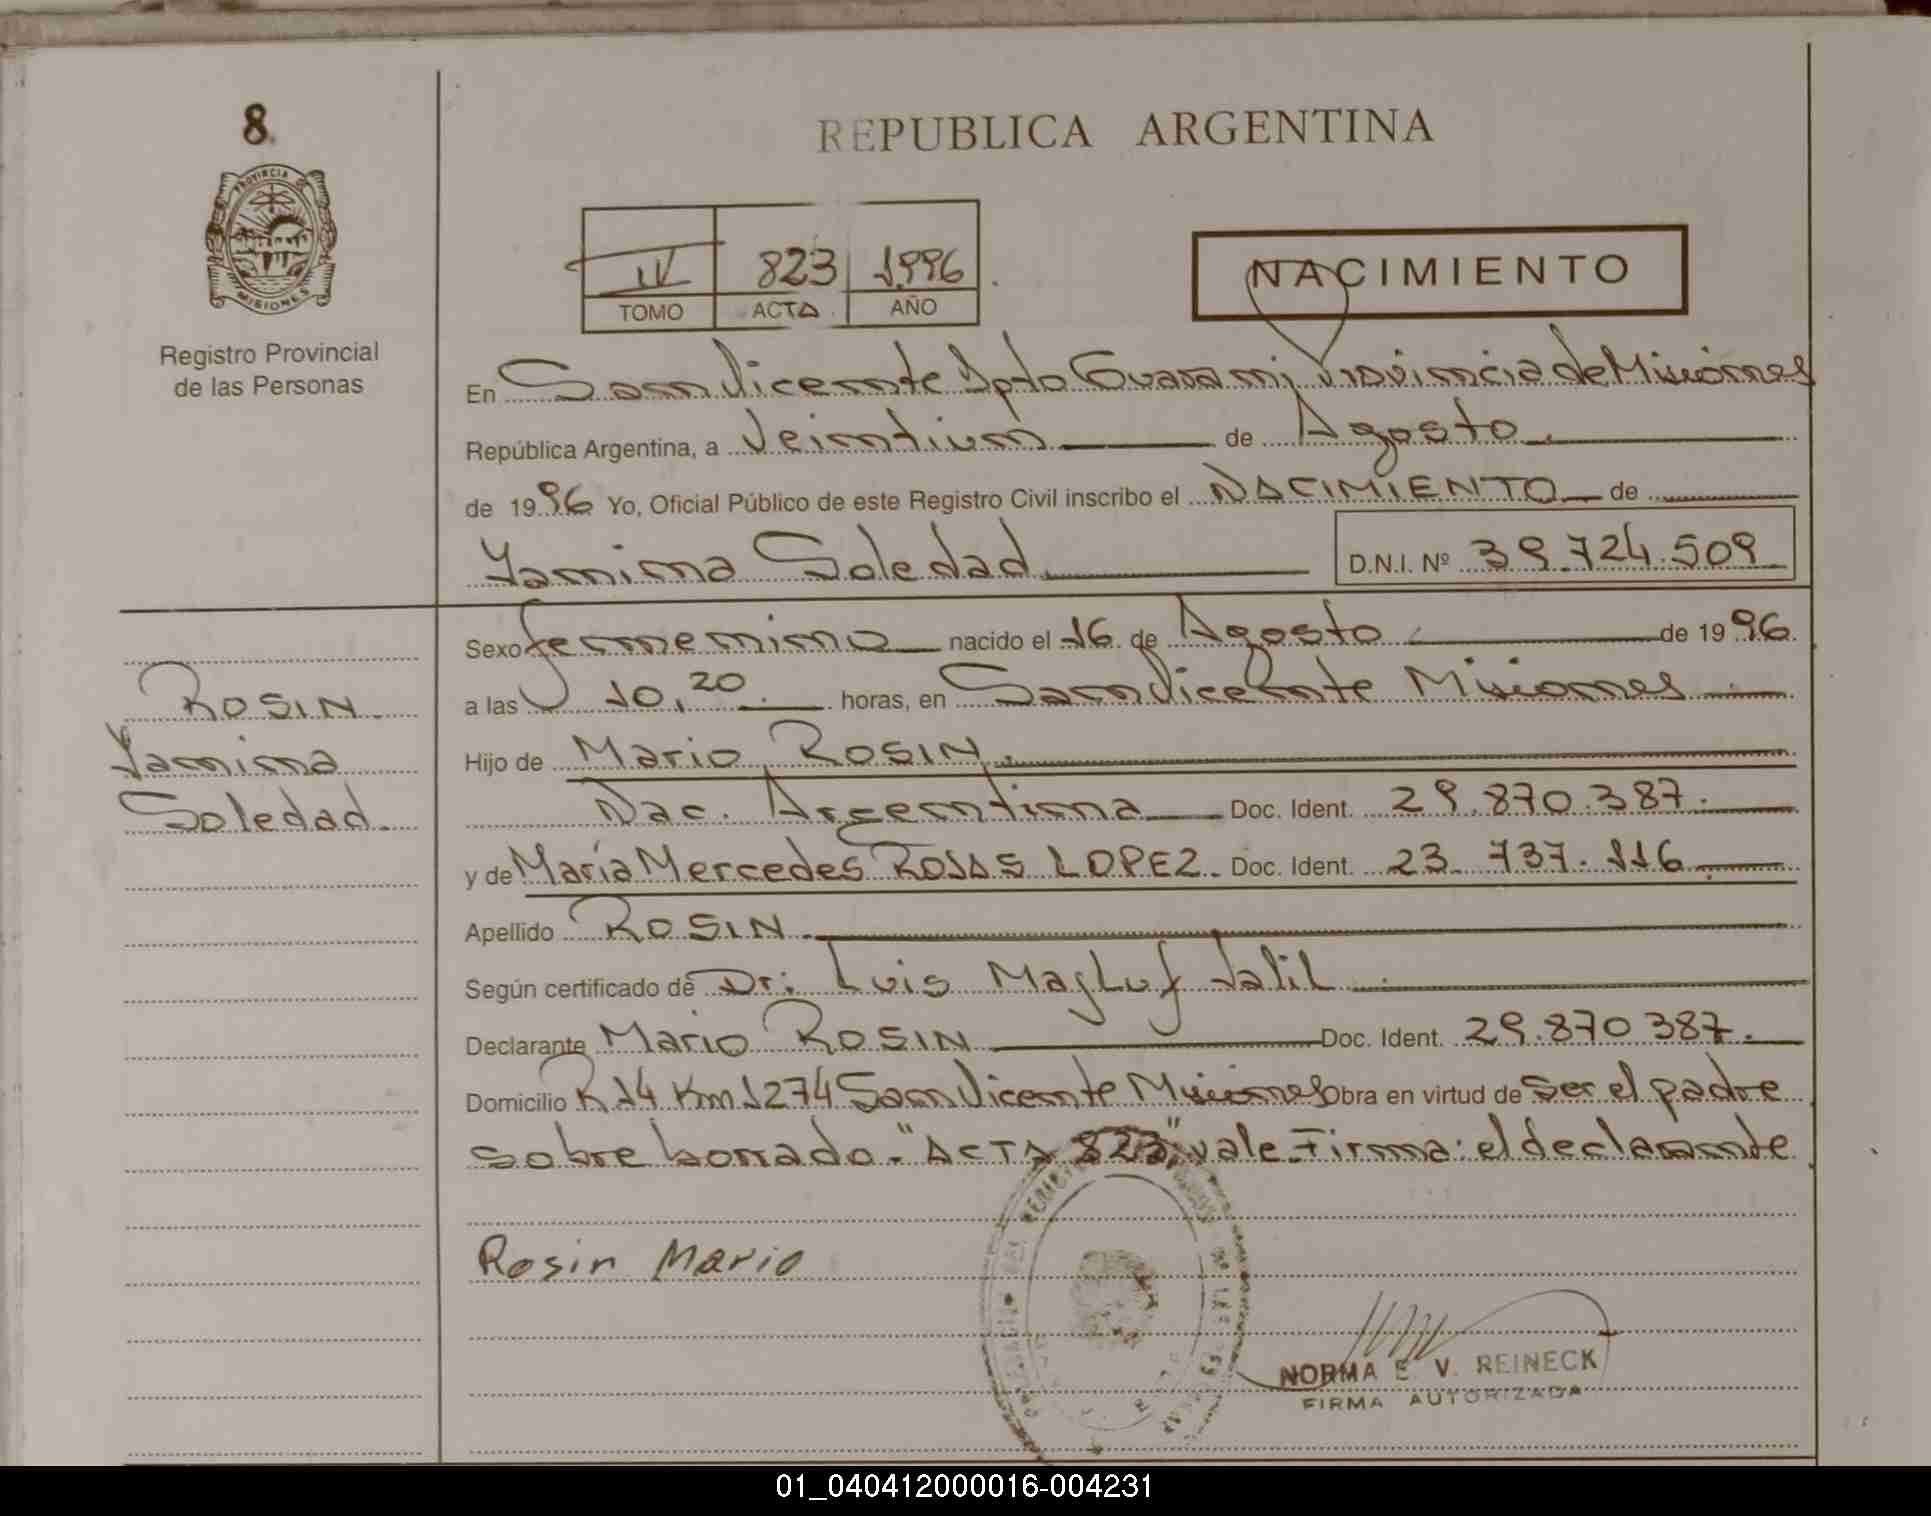 8.
PROVINCIA DE
MISIONES
Registro Provincial
de las Personas
REPUBLICA ARGENTINA
IV 823 1996
TOMO ACTA AÑO
NACIMIENTO
En San Vicente Dpto Guarani Provincia de Misiones
República Argentina, a Veintiun de Agosto
de 1996 Yo, Oficial Público de este Registro Civil inscribo el NACIMIENTO de
Yanina Soledad D.N.I. Nº 39.724.509
Sexo femenino nacido el 16 de Agosto de 1996
a las 10,20 horas, en San Vicente Misiones
Hijo de Mario ROSIN
Nac. Argentina Doc. Ident. 29.870.387.
y de María Mercedes ROJAS LOPEZ. Doc. Ident. 23.737.116
Apellido ROSIN
Según certificado de Dr: Luis Magluf Jalil
Declarante Mario ROSIN Doc. Ident. 29.870.387.
Domicilio R 14 Km 1274 San Vicente Misiones Obra en virtud de Ser el padre
sobre borrado. "ACTA 823" vale. Firma: el declarante
ROSIN
Yanina
Soledad.
Rosin Mario
NORMA E. V. REINECK
FIRMA AUTORIZADA
01_040412000016-004231